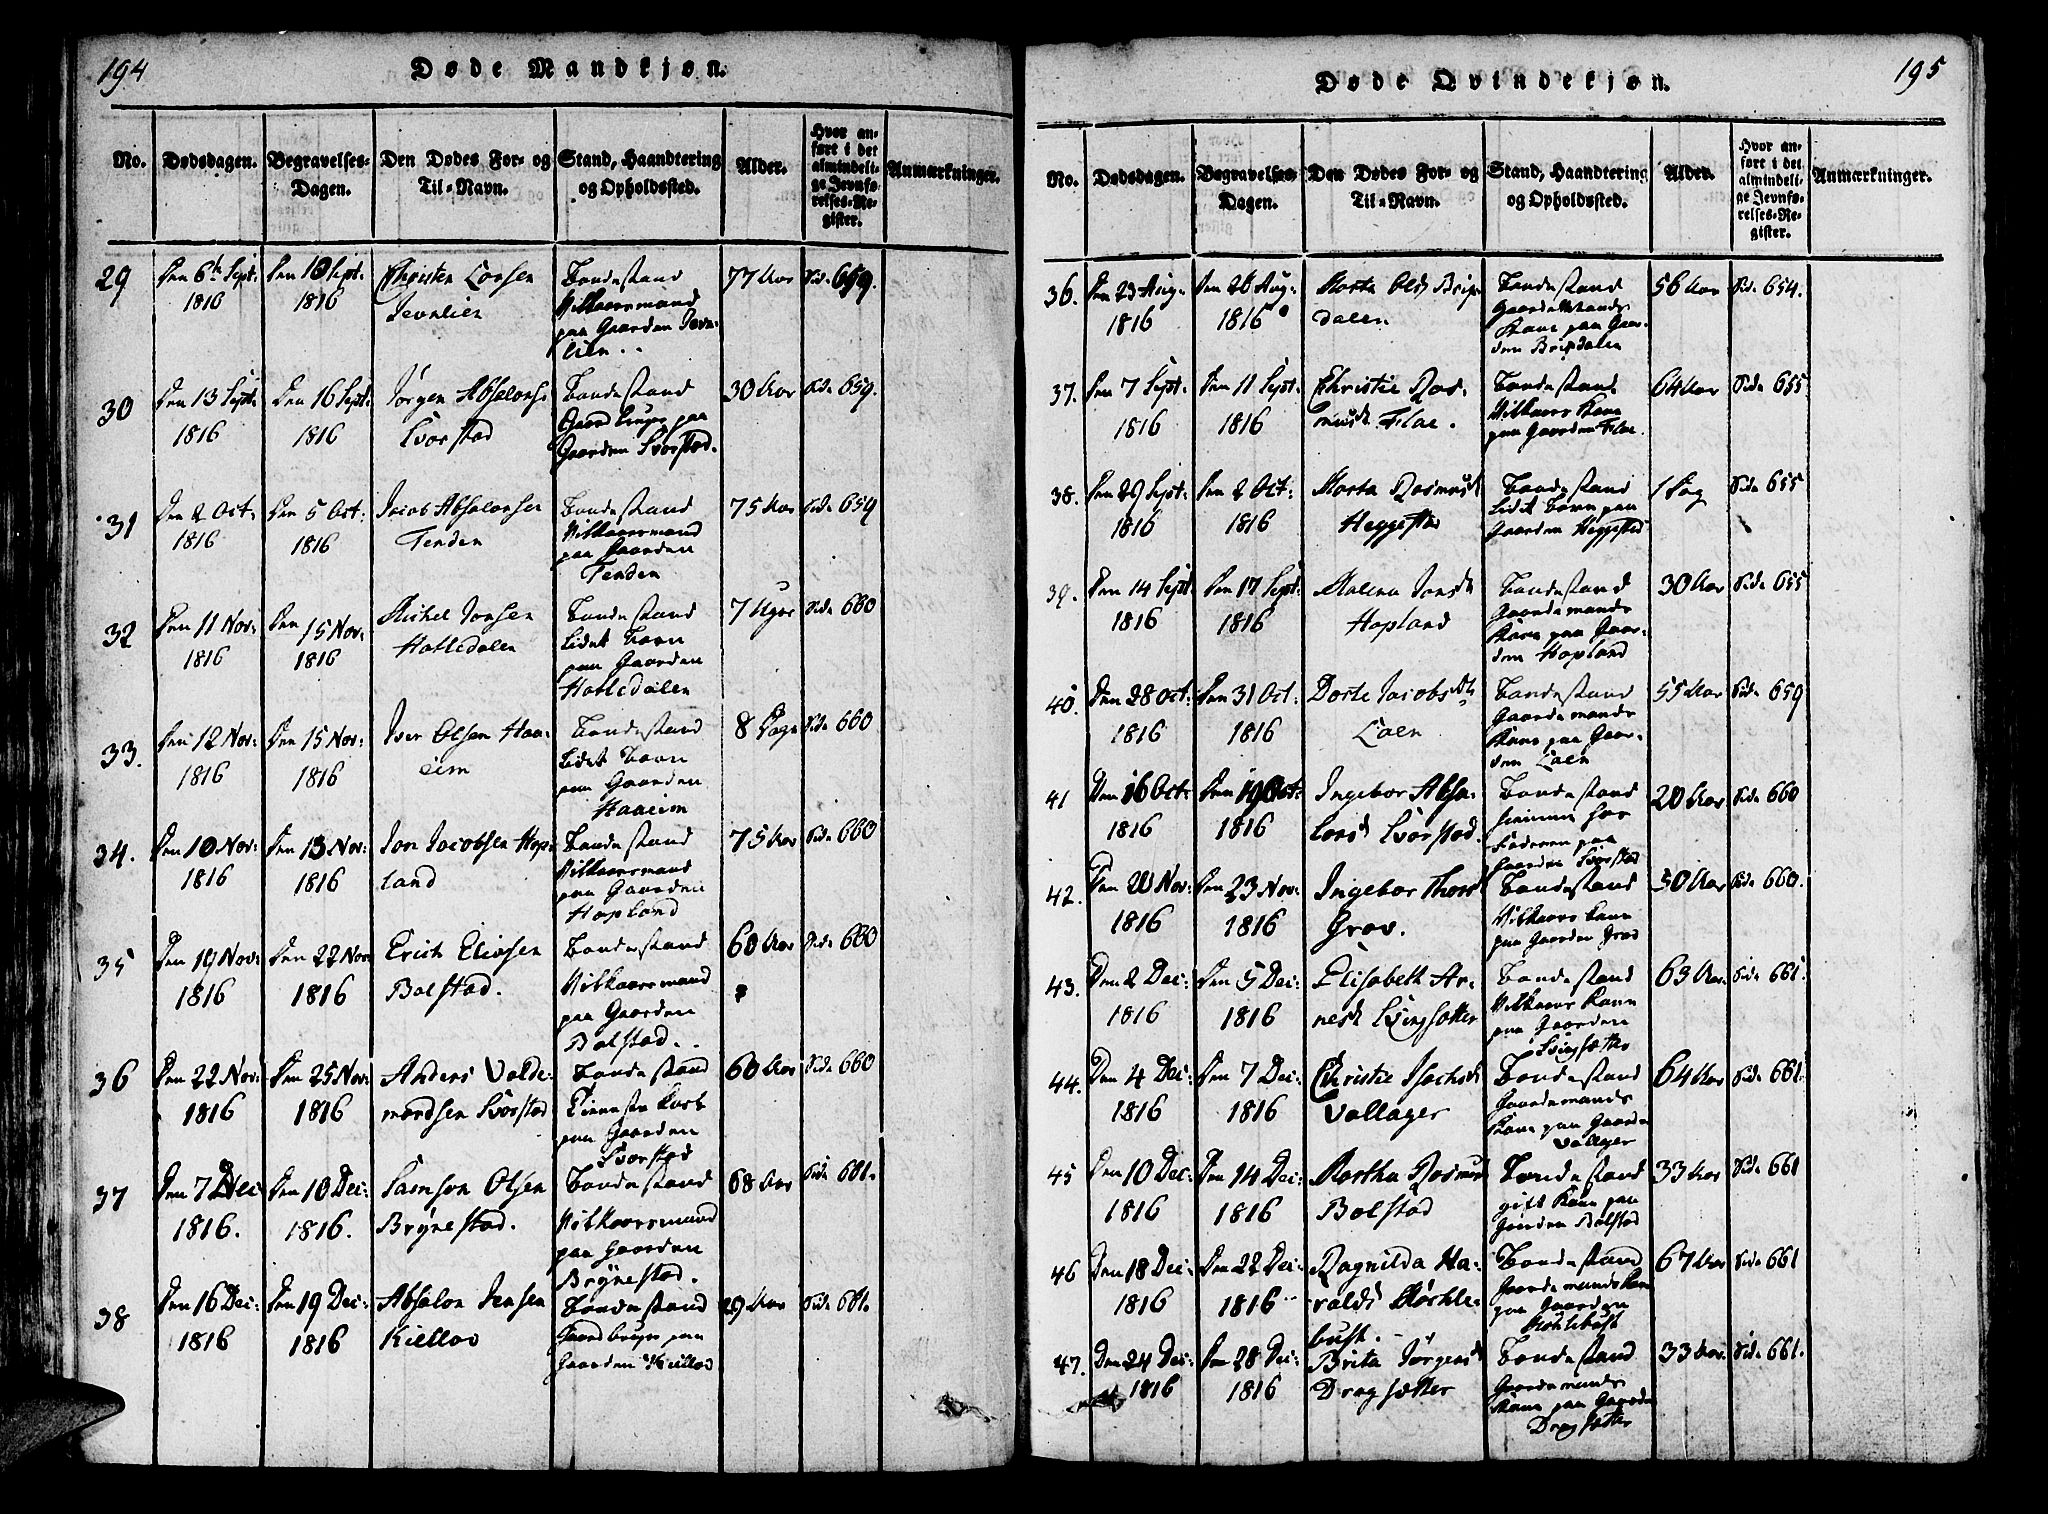 194
Døde Mandkjøn.
No.
Dødsdagen.
Begravelses-
Dagen.
Den Dødes For- og
Til-Navn.
Stand, Haandtering
og Opholdssted.
Alder.
Hvor an-
ført i det
almindeli-
ge Jevnfø-
relses-Re-
gister.
Anmærkninger.
29
Den 6te Sept:
1816
Den 10 Sept:
1816
Christen
Jevnlien
Bondestand
Vilkaarsmand
paa Gaarden Jevn-
lien.
77 Aar
Side 659.
30
Den 13 Sept:
1816
Den 16 Sept:
1816
Jørgen Absalons:
Svorstad
Bondestand
Gaardbruger paa
Gaarden Svorstad.
30 Aar
Side 659.
31
Den 2 Oct:
1816
Den 5 Oct:
1816
Jacob Absalonsen
Tenden
Bondestand
Vilkaarsmand
paa Gaarden
Tenden
75 Aar
Side 659
32
Den 11 Nov:
1816
Den 15 Nov:
1816
Michel Jonsen
Hattedalen
Bondestand
Lidet Barn
paa Gaarden
Hattedalen
7 Uger
Side 660
33.
Den 12 Nov:
1816
Den 15 Nov:
1816
Iver Olsen Haa-
eim
Bondestand
Lidet Barn
paa Gaarden
Haaeim
8 Dage
Side 660
34.
Den 10 Nov:
1816
Den 13 Nov:
1816
Jon Jacobsen Hop-
land
Bondestand
Vilkaarsmand
paa Gaarden
Hopland
75 Aar
Side 660
35
Den 19 Nov:
1816
Den 22 Nov
1816
Erich Elivsen
Bolstad.
Bondestand
Vilkaarsmand
paa Gaarden
Bolstad.
60 Aar
Side 660
36
Den 22 Nov:
1816
Den 25 Nov:
1816
Anders Valde-
mardsen Svorstad
Bondestand
Tieneste Karl
paa Gaarden
Svorstad
60 Aar
Side 660
37
Den 7 Dec
1816.
Den 10 Dec:
1816.
Samson Olsen
Brynestad.
Bondestand
Vilkaarsmand
paa Gaarden
Brynestad.
68 Aar
Side 661.
38
Den 16 Dec:
1816
Den 19 Dec:
1816
Absalon Jensen
Kiellos
Bondestand
Gaardbruger paa
Gaarden Kiellos
29 Aar
Side 661.
195
Døde Qvindekjøn.
No.
Dødsdagen.
Begravelses-
Dagen.
Den Dødes For- og
Til-Navn.
Stand, Haandtering
og Opholdssted.
Alder.
Hvor an-
ført i det
almindeli-
ge Jevnfø-
relses-Re-
gister.
Anmærkninger.
36.
Den 23 Aug:
1816
Den 26 Aug:
1816
Marta Olsd Brix-
dalen
Bondestand
Gaardemands
Kone paa Gaar-
den Brixdalen
56 Aar
Side 654.
37.
Den 7 Sept:
1816
Den 11 Sept:
1816
Christie Ras-
musd. Floe.
Bondestand
Vilkaars Kone
paa Gaarden Floe.
64 Aar
Side 655
38.
Den 29 Sept:
1816
Den 2 Oct:
1816
Marta Rasmusd
Heggestad
Bondestand
Lidet Barn paa
Gaarden Heggestad
1 Dag
Side 655
39.
Den 14 Sept
1816
Den 17 Sept:
1816
Malena Jonsd
Hopland
Bondestand
Gaardemands
Kone paa Gaar-
den Hopland
30 Aar
Side 655
40.
Den 28 Oct:
1816
Den 31 Oct:
1816
Dorte Jacobsdt
Loen
Bondestand
Gaardemands
Kone paa Gaar-
den Loen
55 Aar
Side 659
41
Den 16 Oct:
1816
Den 19 Oct:
1816
Ingebor Absa-
lonsd Svorstad.
Bondestand
hiemme hos
Faderen paa
Gaarden Svorstad
20 Aar
Side 660
42.
Den 20 Nov:
1816
Den 23 Nov:
1816
Ingebor Thorsd
Grov.
Bondestand
Vilkaars Kone
paa Gaarden Grov
50 Aar
Side 660.
43.
Den 2 Dec:
1816
Den 5 Dec:
1816
Elisabeth Ar-
nesd Qvingsætter
Bondestand
Vilkaars Kone
paa Gaarden
63 Aar.
Side 661.
44.
Den 4 Dec:
1816
Den 7 Dec:
1816
Christie Isachsd
Vollager
Bondestand
Gaardemands
Kone paa Gaarden
Vollager
64 Aar
Side 661.
45
Den 10 Dec:
1816
Den 14 Dec:
1816
Martha Rasmusd
Bolstad
Bondestand
gift Kone paa
Gaarden Bolstad
33 Aar
Side 661
46
Den 18 Dec:
1816
Den 22 Dec:
1816
Ragnilda Ha-
raldsd
bust.
Bondestand
Gaardemands Kone
paa Gaarden
67 Aar
Side 661
47.
Den 24 Dec:
1816
Den 28 Dec:
1816
Brita Jørgensd
Dragsætter
Bondestand
Gaardemands
Kone paa Gaarden
Dragsætter
33 Aar.
Side 661.